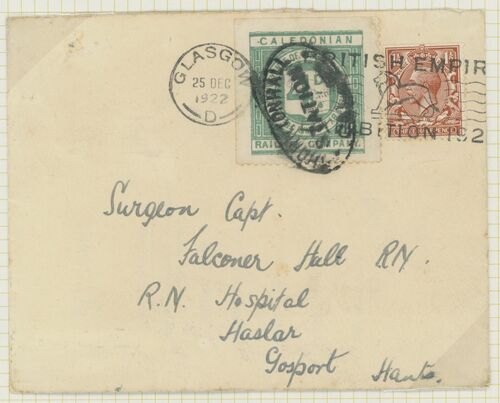 GLASGOW
25 DEC
1922
D
CALEDONIAN
4D
RAILWAY COMPANY.
BRITISH EMPIRE
EXHIBITION 192
Surgeon Capt.
Falconer Hall RN.
R.N. Hospital
Haslar
Gosport Hants.